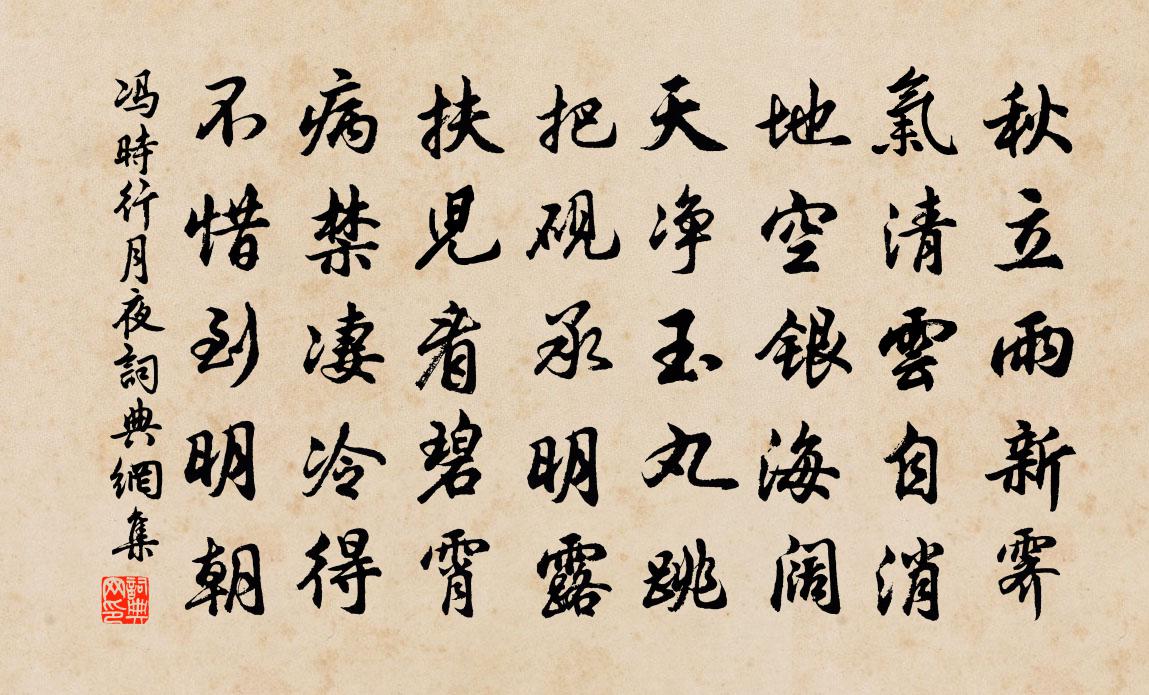 秋立雨新霽
氣清雲自消
地空銀海闊
天净玉丸跳
把硯承明露
扶児看碧霄
病禁凄冷得
不惜到明朝
冯時行月夜詞典網集
詞典网印